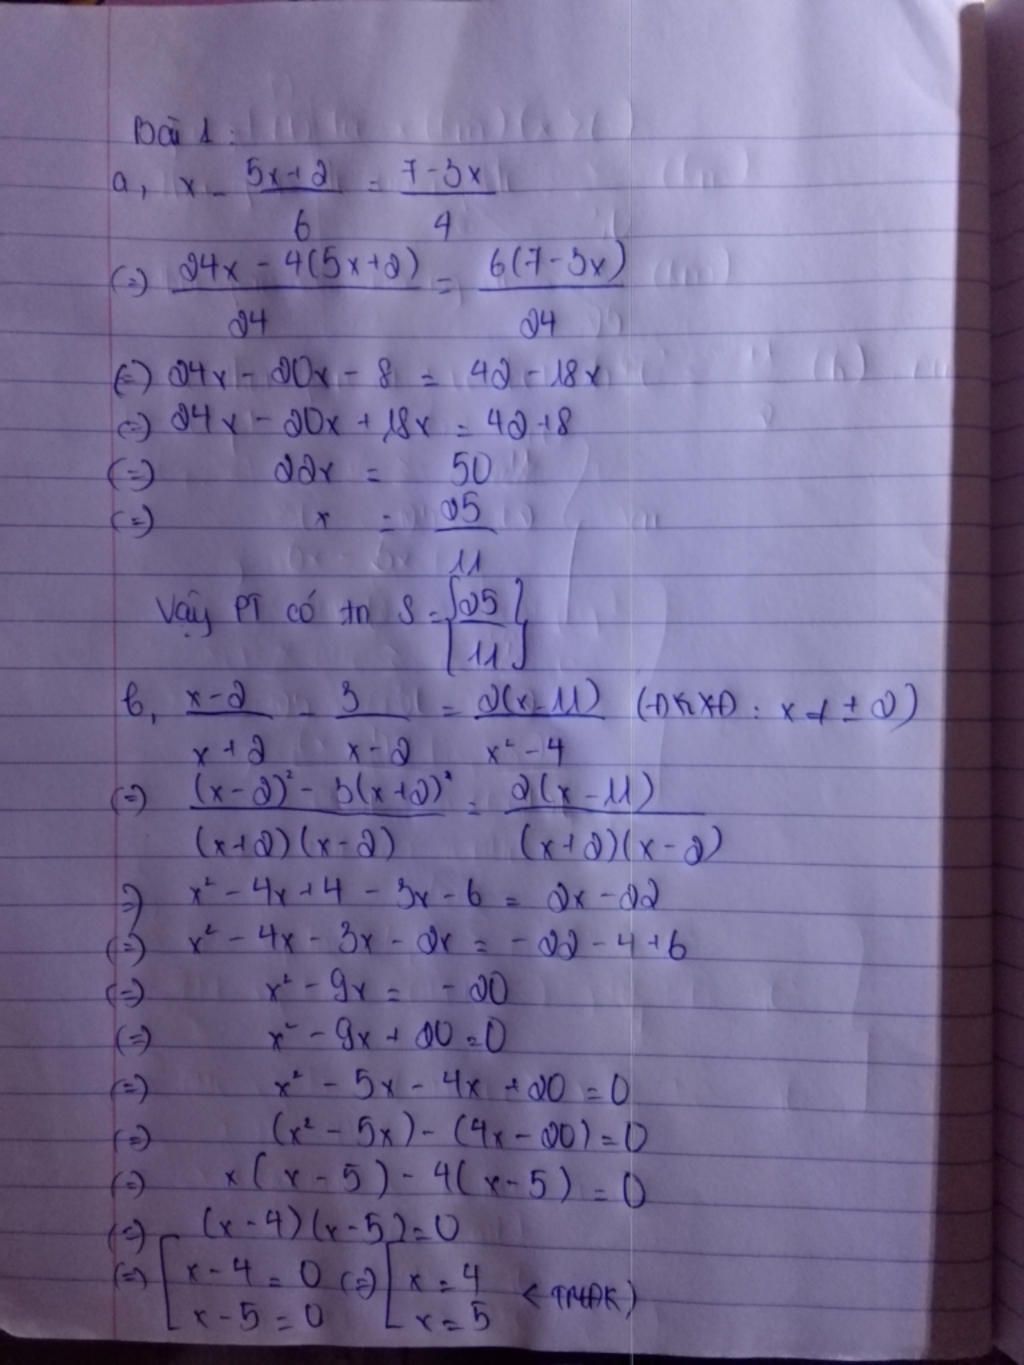 Bài 1:
a, x - (5x+2)/6 = (7-3x)/4
(=) (24x - 4(5x+2))/24 = 6(7-3x)/24
(=) 24x - 20x - 8 = 42 - 18x
(=) 24x - 20x + 18x = 42+8
(=) 22x = 50
(=) x = 25/11
Vậy PT có tn S = {25/11}
b, (x-2)/(x+2) - 3/(x-2) = 2(x-11)/(x²-4) (ĐKXĐ: x ≠ ±2)
(=) ((x-2)² - 3(x+2)²)/((x+2)(x-2)) = 2(x-11)/((x+2)(x-2))
=) x² - 4x + 4 - 3x - 6 = 2x - 22
(=) x² - 4x - 3x - 2x = -22 - 4 + 6
(=) x² - 9x = -20
(=) x² - 9x + 20 = 0
(=) x² - 5x - 4x + 20 = 0
(=) (x² - 5x) - (4x - 20) = 0
(=) x(x-5) - 4(x-5) = 0
(=) (x-4)(x-5) = 0
(=) [x-4 = 0 (=) [x = 4
x-5 = 0 x = 5 (TMĐK)